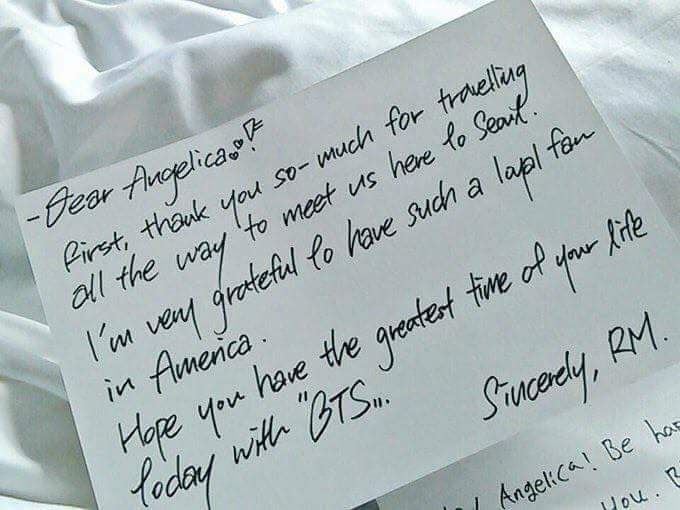 -Dear Angelica
First, thank you so-much for travelling
all the way to meet us here to Seoul.
I'm very grateful to have such a loyal fan
in America.
Hope you have the greatest time of your life
today with "BTS„.
Sincerely, RM.
Angelica! Be
you.